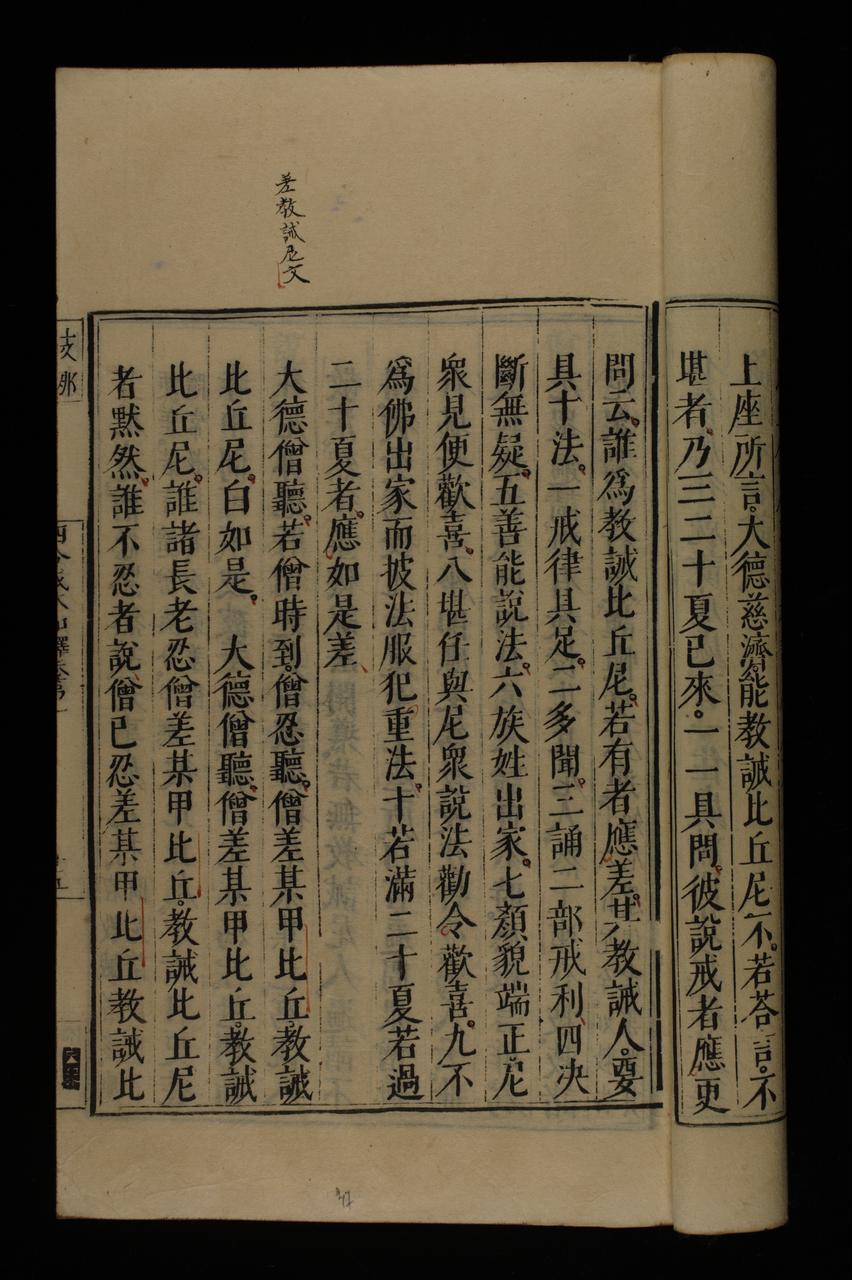 上座所言大德慈濟能教誡比丘尼不若荅言不
堪者乃三二十夏已來一一具問彼說戒者應更
差教誡尼文
問云誰爲教誡比丘尼若有者應差其教誡人要
具十法一戒律具足二多聞三誦二部戒利四决
斷無疑五善能說法六族姓出家七顏貌端正尼
衆見便歡喜八堪任與尼衆說法勸令歡喜九不
爲佛出家而披法服犯重法十若滿二十夏若過
二十夏者應如是差
大德僧聽若僧時到僧忍聽僧差某甲比丘教誡
比丘尼白如是　大德僧聽僧差某甲比丘教誡
比丘尼誰諸長老忍僧差某甲比丘教誡比丘尼
者默然誰不忍者說僧已忍差某甲比丘教誡比
支那